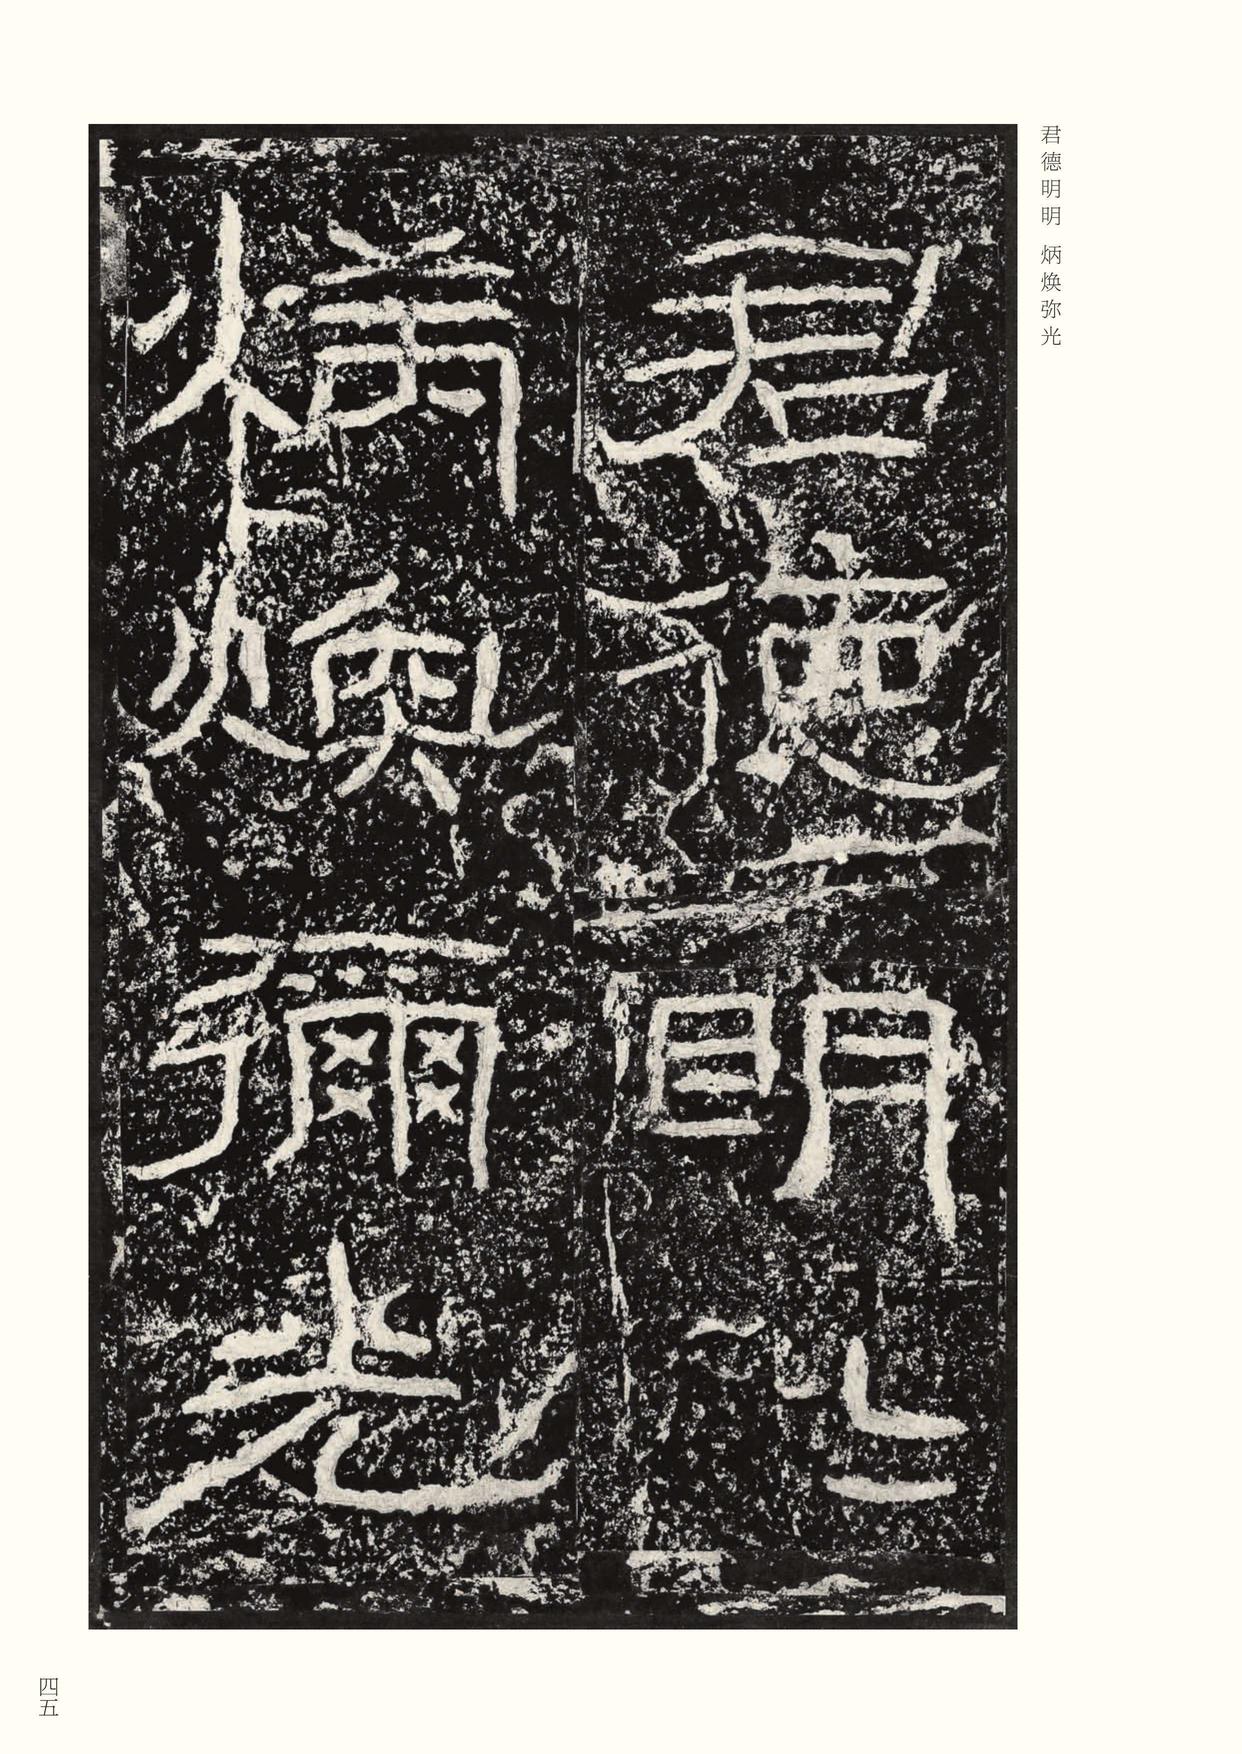 君德明明 炳焕弥光
君德明〻
炳煥彌光
四五